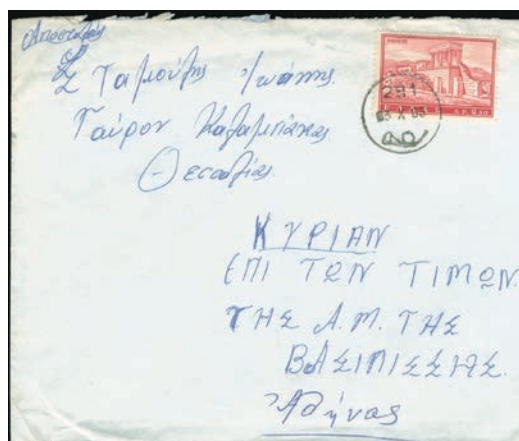 Αποστολεύς
Σταμούλης Ιωάννης
Ταύρον Καλαμπάκας
Θεσσαλίας
291
ΚΥΡΙΑΝ
ΕΠΙ ΤΩΝ ΤΙΜΩΝ
ΤΗΣ Α.Μ. ΤΗΣ
ΒΑΣΙΛΙΣΣΗΣ.
Αθήνας